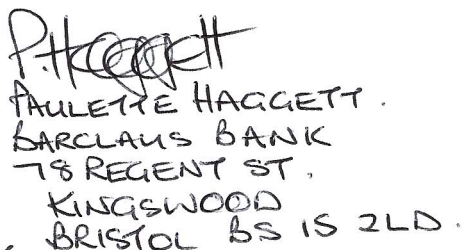 P. Haggett
PAULETTE HAGGETT.
BARCLAYS BANK
78 REGENT ST.
KINGSWOOD
BRISTOL BS 15 2LD.